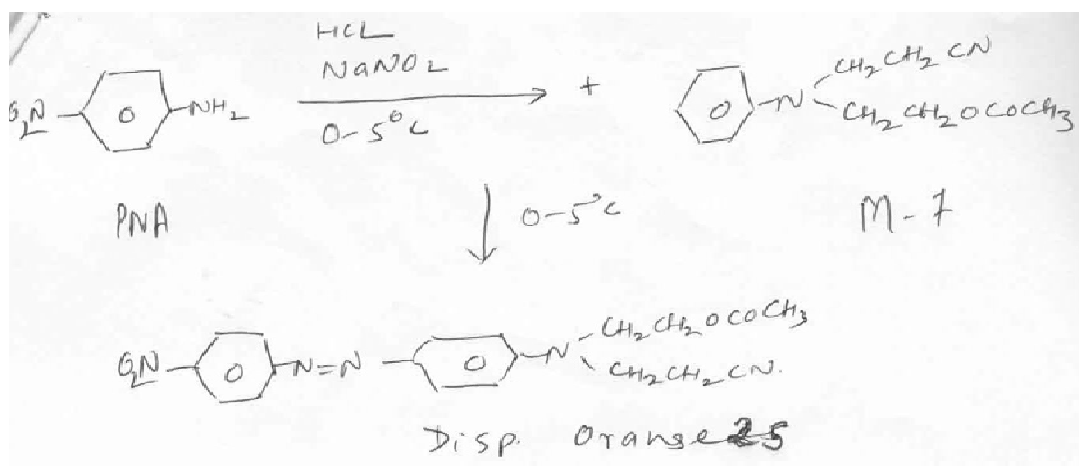 HCL
NaNO2
0-5°C
O2N
NH2
+
N
CH2 CH2 CN
CH2 CH2 OCOCH3
PNA
0-5°C
M-7
O2N
N=N
N
CH2 CH2 OCOCH3
CH2 CH2 CN.
Disp. Orange 25